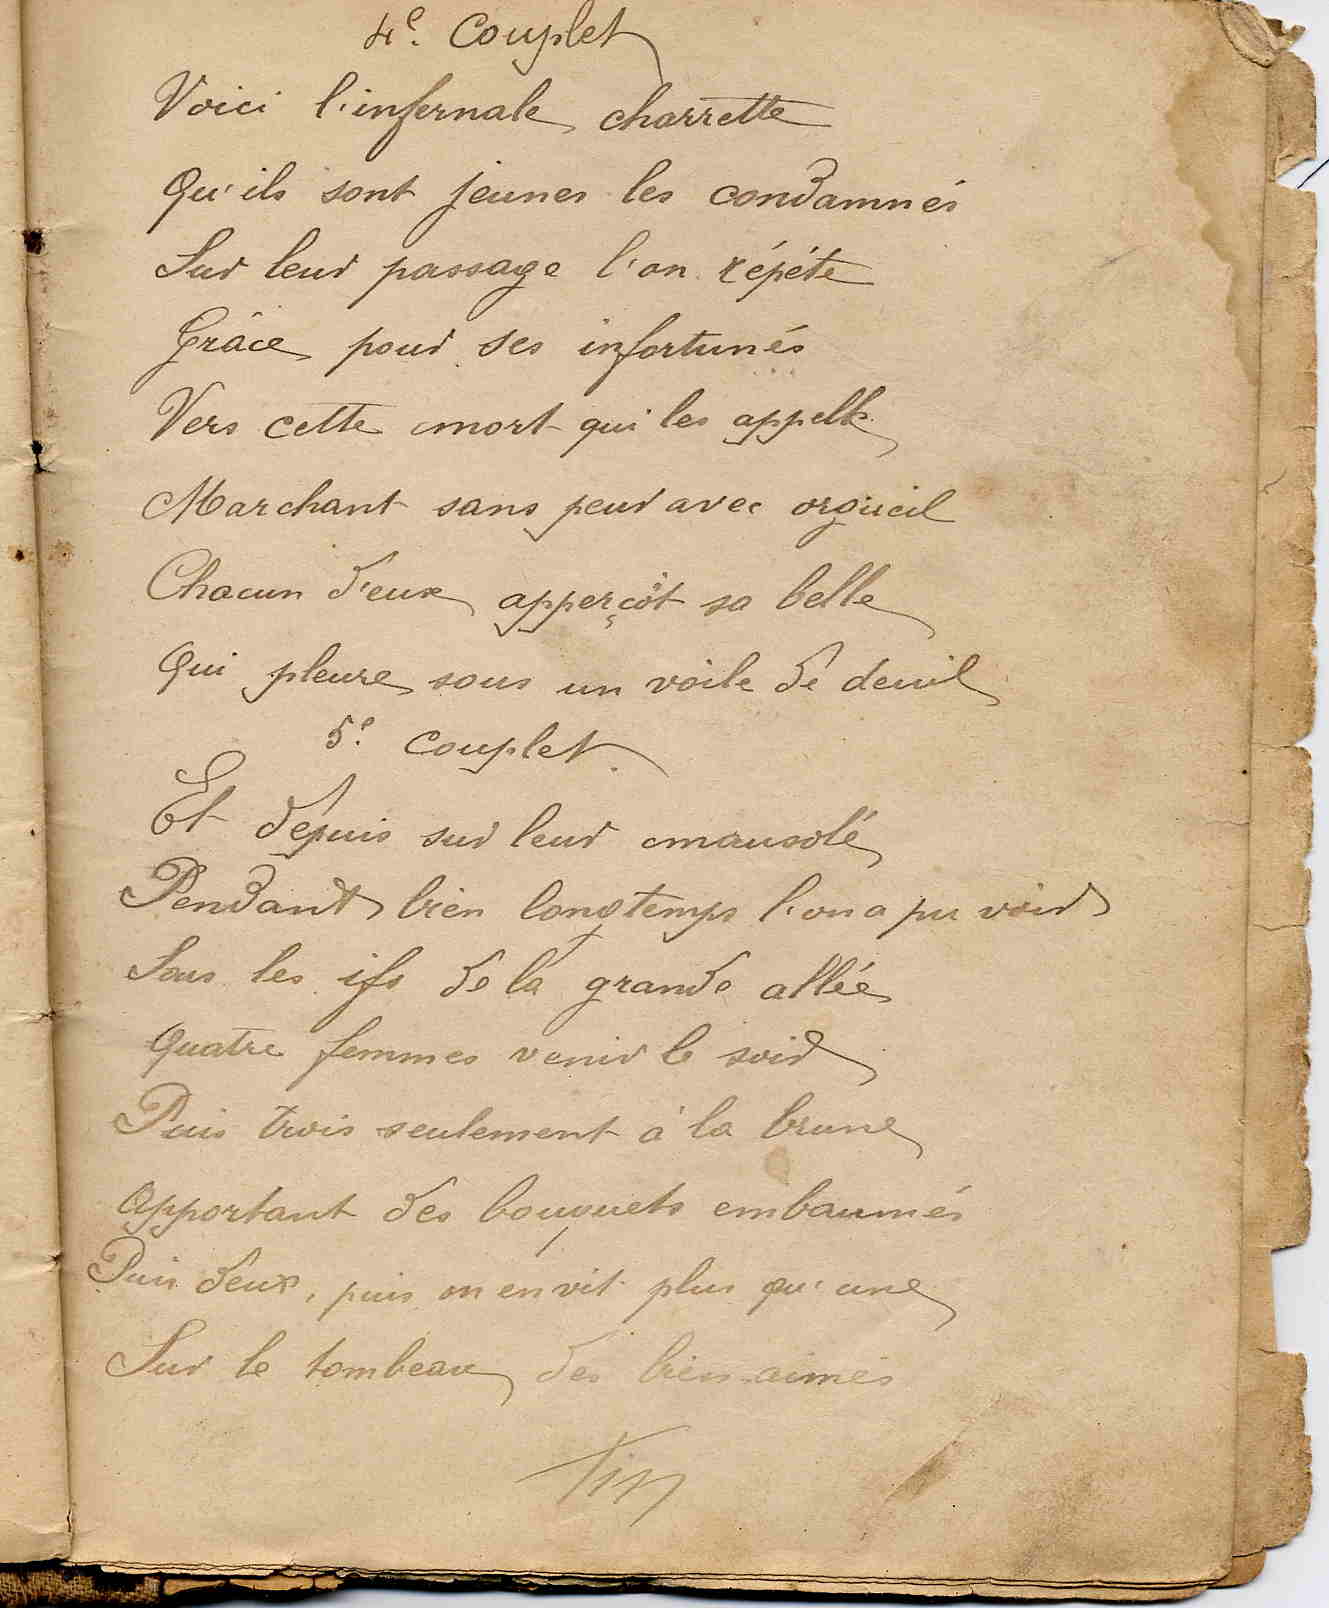 4e. Couplet
Voici l'infernale charrette
Qu'ils sont jeunes les condamnés
Sur leur passage l'on répéte
Grâce pour ses infortunés
Vers cette mort qui les appelle
Marchant sans peur avec orgueil
Chacun d'eux apperçoit sa belle
Qui pleure sous un voile de deuil
5e. couplet.
Et dépuis sur leur mausolé
Pendant bien longtemps l'on a pu voir
Sous les ifs de la grande allée
Quatre femmes venir le soir
Puis trois seulement à la brune
Apportant des bouquets embaumés
Puis deux, puis on en vit plus qu'une
Sur le tombeau des bien-aimés
Fin